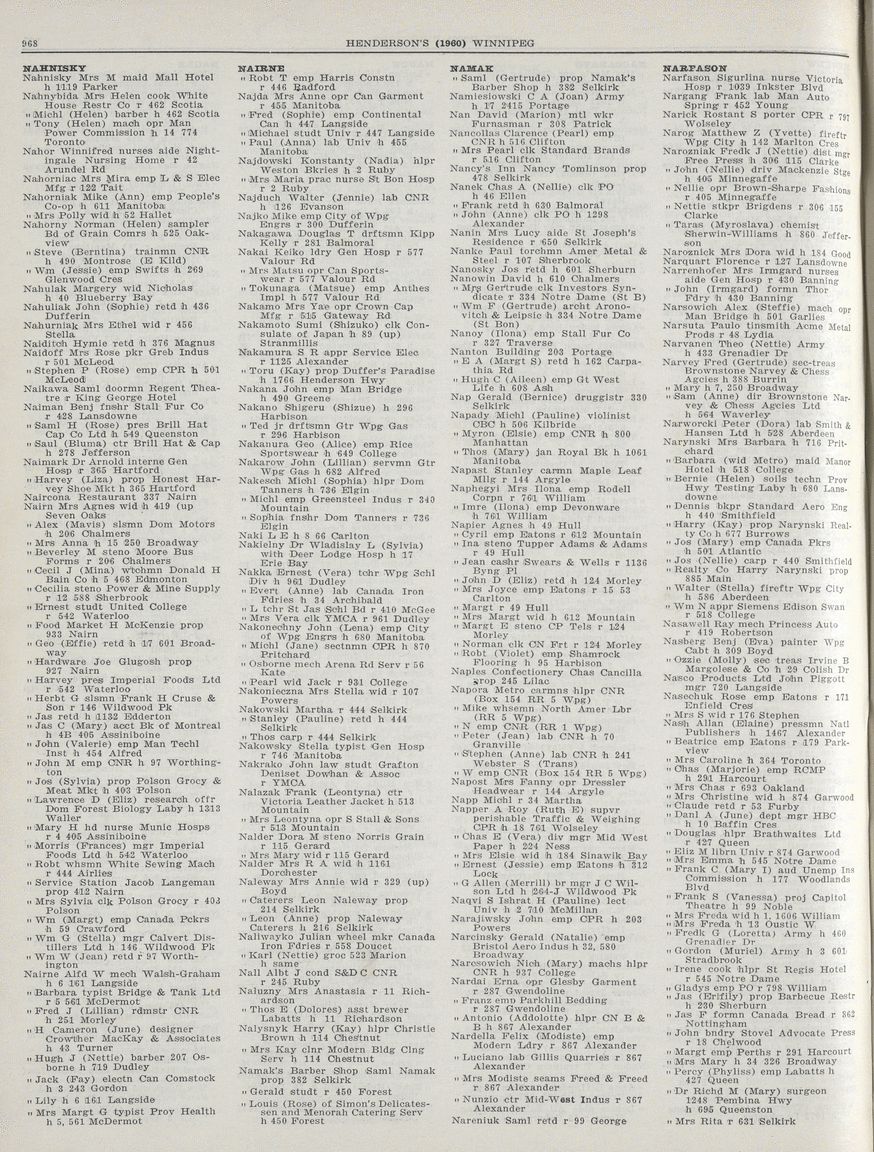 968
HENDERSON'S (1960) WINNIPEG
NAHNISKY
Nahnisky Mrs M maid Mall Hotel
h 1119 Parker
Nahnybida Mrs Helen cook White
House Restr Co r 462 Scotia
" Michl (Helen) barber h 462 Scotia
" Tony (Helen) mach opr Man
Power Commission h 14 774
Toronto
Nahor Winnifred nurse aide Night-
ingale Nursing Home r 42
Arundel Rd
Nahorniac Mrs Mira emp L & S Elec
Mfg r 122 Tait
Nahorniak Mike (Ann) emp People's
Co-op h 611 Manitoba
" Mrs Polly wid h 52 Hallet
Nahorny Norman (Helen) sampler
Bd of Grain Comrs h 525 Oak-
view
" Steve (Berntina) trainmn CNR
h 490 Montrose (E Kild)
" Wm (Jessie) emp Swifts h 269
Glenwood Cres
Nahulak Margery wid Nicholas
h 40 Blueberry Bay
Nahuliak John (Sophie) retd h 436
Dufferin
Nahurniak Mrs Ethel wid r 456
Stella
Naiditch Hymie retd h 376 Magnus
Naidoff Mrs Rose pkr Greb Indus
r 501 McLeod
" Stephen P (Rose) emp CPR h 501
McLeod
Naikawa Saml doormn Regent Thea-
tre r King George Hotel
Naiman Benj fnshr Stall Fur Co
r 428 Lansdowne
" Saml H (Rose) pres Brill Hat
Cap Co Ltd h 549 Queenston
" Saul (Bluma) ctr Brill Hat & Cap
h 278 Jefferson
Naimark Dr Arnold interne Gen
Hosp r 365 Hartford
" Harvey (Liza) prop Honest Har-
vey Shoe Mkt h 365 Hartford
Naircona Restaurant 337 Nairn
Nairn Mrs Agnes wid h 419 (up
Seven Oaks
" Alex (Mavis) slsmn Dom Motors
h 206 Chalmers
" Mrs Anna h 15 250 Broadway
" Beverley M steno Moore Bus
Forms r 206 Chalmers
" Cecil J (Mina) wtchmn Donald H
Bain Co h 5 468 Edmonton
" Cecilia steno Power & Mine Supply
r 12 588 Sherbrook
" Ernest studt United College
r 542 Waterloo
" Food Market H McKenzie prop
933 Nairn
" Geo (Effie) retd h 17 601 Broad-
way
" Hardware Joe Glugosh prop
927 Nairn
" Harvey pres Imperial Foods Ltd
r 542 Waterloo
" Herbt G slsmn Frank H Cruse &
Son r 146 Wildwood Pk
" Jas retd h 1132 Edderton
" Jas C (Mary) acct Bk of Montreal
h 4B 405 Assiniboine
" John (Valerie) emp Man Techl
Inst h 454 Alfred
" John M emp CNR h 97 Worthing-
ton
" Jos (Sylvia) prop Polson Grocy &
Meat Mkt h 403 Polson
" Lawrence D (Eliz) research offr
Dom Forest Biology Laby h 1313
Waller
" Mary H hd nurse Munic Hosps
r 4 405 Assiniboine
" Morris (Frances) mgr Imperial
Foods Ltd h 542 Waterloo
" Robt whsmn White Sewing Mach
r 444 Airlies
" Service Station Jacob Langeman
prop 412 Nairn
" Mrs Sylvia clk Polson Grocy r 403
Polson
" Wm (Margt) emp Canada Pckrs
h 59 Crawford
" Wm G (Stella) mgr Calvert Dis-
tillers Ltd h 146 Wildwood Pk
" Wm W (Jean) retd r 97 Worth-
ington
Nairne Alfd W mech Walsh-Graham
h 6 161 Langside
" Barbara typist Bridge & Tank Ltd
r 5 561 McDermot
" Fred J (Lillian) rdmstr CNR
h 251 Morley
" H Cameron (June) designer
Crowther MacKay & Associates
h 43 Turner
" Hugh J (Nettie) barber 207 Os-
borne h 719 Dudley
" Jack (Fay) electn Can Comstock
h 3 243 Gordon
" Lily h 6 161 Langside
" Mrs Margt G typist Prov Health
h 5, 561 McDermot
NAIRNE
" Robt T emp Harris Constn
r 446 Radford
Najda Mrs Anne opr Can Garment
r 455 Manitoba
" Fred (Sophie) emp Continental
Can h 447 Langside
" Michael studt Univ r 447 Langside
" Paul (Anna) lab Univ h 455
Manitoba
Najdowski Konstanty (Nadia) hlpr
Weston Bkries h 2 Ruby
" Mrs Maria prac nurse St Bon Hosp
r 2 Ruby
Najduch Walter (Jennie) lab CNR
h 126 Evanson
Najko Mike emp City of Wpg
Engrs r 300 Dufferin
Nakagawa Douglas T drftsmn Kipp
Kelly r 281 Balmoral
Nakai Keiko ldry Gen Hosp r 577
Valour Rd
" Mrs Matsu opr Can Sports-
wear r 577 Valour Rd
" Tokunaga (Matsue) emp Anthes
Impl h 577 Valour Rd
Nakamo Mrs Yae opr Crown Cap
Mfg r 515 Gateway Rd
Nakamoto Sumi (Shizuko) clk Con-
sulate of Japan h 89 (up)
Stranmillis
Nakamura S R appr Service Elec
r 1125 Alexander
" Toru (Kay) prop Duffer's Paradise
h 1766 Henderson Hwy
Nakana John emp Man Bridge
h 490 Greene
Nakano Shigeru (Shizue) h 296
Harbison
" Ted jr drftsmn Gtr Wpg Gas
r 296 Harbison
Nakanura Geo (Alice) emp Rice
Sportswear h 649 College
Nakarow John (Lillian) servmn Gtr
Wpg Gas h 682 Alfred
Nakesch Michl (Sophia) hlpr Dom
Tanners h 736 Elgin
" Michl emp Greensteel Indus r 340
Mountain
" Sophia fnshr Dom Tanners r 736
Elgin
Naki L E h 8 66 Carlton
Nakielny Dr Wladislay L (Sylvia)
with Deer Lodge Hosp h 17
Erie Bay
Nakka Ernest (Vera) tchr Wpg Schl
Div h 961 Dudley
" Evert (Anne) lab Canada Iron
Fdries h 34 Archibald
" L tchr St Jas Schl Bd r 410 McGee
" Mrs Vera clk YMCA r 961 Dudley
Nakonechny John (Lena) emp City
of Wpg Engrs h 680 Manitoba
" Michl (Jane) sectnmn CPR h 870
Pritchard
" Osborne mech Arena Rd Serv r 56
Kate
" Pearl wid Jack r 931 College
Nakonieczna Mrs Stella wid r 107
Powers
Nakowski Martha r 444 Selkirk
" Stanley (Pauline) retd h 444
Selkirk
" Thos carp r 444 Selkirk
Nakowsky Stella typist Gen Hosp
r 746 Manitoba
Nakrako John law studt Grafton
Deniset Dowhan & Assoc
r YMCA
Nalazak Frank (Leontyna) ctr
Victoria Leather Jacket h 513
Mountain
" Mrs Leontyna opr S Stall & Sons
r 513 Mountain
Nalder Dora M steno Norris Grain
r 115 Gerard
" Mrs Mary wid r 115 Gerard
Nalder Mrs R A wid h 1161
Dorchester
Naleway Mrs Annie wid r 329 (up)
Boyd
" Caterers Leon Naleway prop
214 Selkirk
" Leon (Anne) prop Naleway
Caterers h 216 Selkirk
Naliwayko Julian wheel mkr Canada
Iron Fdries r 558 Doucet
" Karl (Nettie) groc 523 Marion
h same
Nall Albt J cond S&D C CNR
r 245 Ruby
Naluzny Mrs Anastasia r 11 Rich-
ardson
" Thos E (Dolores) asst brewer
Labatts h 11 Richardson
Nalysnyk Harry (Kay) hlpr Christie
Brown h 114 Chestnut
" Mrs Kay clnr Modern Bldg Clng
Serv h 114 Chestnut
Namak's Barber Shop Saml Namak
prop 382 Selkirk
" Gerald studt r 450 Forest
" Louis (Rose) of Simon's Delicates-
sen and Menorah Catering Serv
h 450 Forest
NAMAK
" Saml (Gertrude) prop Namak's
Barber Shop h 382 Selkirk
Namiesiowski C A (Joan) Army
h 17 2415 Portage
Nan David (Marion) mtl wkr
Furnasman r 308 Patrick
Nancollas Clarence (Pearl) emp
CNR h 516 Clifton
" Mrs Pearl clk Standard Brands
r 516 Clifton
Nancy's Inn Nancy Tomlinson prop
478 Selkirk
Nanek Chas A (Nellie) clk PO
h 46 Ellen
" Frank retd h 630 Balmoral
" John (Anne) clk PO h 1298
Alexander
Nanin Mrs Lucy aide St Joseph's
Residence r 650 Selkirk
Nanke Paul torchmn Amer Metal &
Steel r 107 Sherbrook
Nanosky Jos retd h 601 Sherburn
Nanowin David h 610 Chalmers
" Mrs Gertrude clk Investors Syn-
dicate r 334 Notre Dame (St B)
" Wm F (Gertrude) archt Arono-
vitch & Leipsic h 334 Notre Dame
(St Bon)
Nancy (Ilona) emp Stall Fur Co
r 327 Traverse
Nanton Building 203 Portage
" E A (Margt S) retd h 162 Carpa-
thia Rd
" Hugh C (Aileen) emp Gt West
Life h 608 Ash
Nap Gerald (Bernice) druggist 330
Selkirk
Napady Michl (Pauline) violinist
CBC h 506 Kilbride
" Myron (Elsie) emp CNR h 800
Manhattan
" Thos (Mary) jan Royal Bk h 1061
Manitoba
Napast Stanley carmn Maple Leaf
Mllg r 144 Argyle
Naphegyi Mrs Ilona emp Rodell
Corpn r 761 William
" Imre (Ilona) emp Devonware
h 761 William
Napier Agnes h 49 Hull
" Cyril emp Eatons r 612 Mountain
" Ina steno Tupper Adams & Adams
r 49 Hull
" Jean cashr Swears & Wells r 1136
Byng Pl
" John D (Eliz) retd h 124 Morley
" Mrs Joyce emp Eatons r 15 53
Carlton
" Margt r 49 Hull
" Mrs Margt wid h 612 Mountain
" Margt E steno CP Tels r 124
Morley
" Norman clk CN Frt r 124 Morley
" Robt (Violet) emp Shamrock
Flooring h 95 Harbison
Naples Confectionery Chas Cancilla
grop 245 Lilac
Napora Metro carmns hlpr CNR
(Box 154 RR 5 Wpg)
" Mike whsemn North Amer Lbr
(RR 5 Wpg)
" N emp CNR (RR 1 Wpg)
" Peter (Jean) lab CNR h 70
Granville
" Stephen (Anne) lab CNR h 241
Webster S (Trans)
" W emp CNR (Box 154 RR 5 Wpg)
Napost Mrs Fanny opr Dressler
Headwear r 144 Argyle
Napp Michl r 34 Martha
Napper A Roy (Ruth E) supvr
perishable Traffic & Weighing
CPR h 18 761 Wolseley
" Chas E (Vera) div mgr Mid West
Paper h 224 Ness
" Mrs Elsie wid h 184 Sinawik Bay
" Ernest (Jessie) emp Eatons h 312
Lock
" G Allen (Merrill) br mgr J C Wil-
son Ltd h 264-J Wildwood Pk
Naqvi S Ishrat H (Pauline) lect
Univ h 2 710 McMillan
Narajiwsky John emp CPR h 203
Powers
Narcinsky Gerald (Natalie) emp
Bristol Aero Indus h 32, 580
Broadway
Narcsowich Nich (Mary) machs hlpr
CNR h 937 College
Nardai Erna opr Glesby Garment
r 287 Gwendoline
" Franz emp Parkhill Bedding
r 287 Gwendoline
" Antonio (Addolotte) hlpr CN B &
B h 867 Alexander
Nardella Felix (Modiste) emp
Modern Ldry r 867 Alexander
" Luciano lab Gillis Quarries r 867
Alexander
" Mrs Modiste seams Freed & Freed
r 867 Alexander
" Nunzio ctr Mid-West Indus r 867
Alexander
Nareniuk Saml retd r 99 George
NARFASON
Narfason Sigurlina nurse Victoria
Hosp r 1039 Inkster Blvd
Nargang Frank lab Man Auto
Spring r 452 Young
Narick Rostant S porter CPR r 797
Wolseley
Narog Matthew Z (Yvette) fireftr
Wpg City h 142 Marlton Cres
Narozniak Fredk J (Nettie) dist mgr
Free Press h 306 115 Clarke
" John (Nellie) driv Mackenzie Stge
h 405 Minnegaffe
" Nellie opr Brown-Sharpe Fashions
r 405 Minnegaffe
" Nettie stkpr Brigdens r 306 155
Clarke
" Taras (Myroslava) chemist
Sherwin-Williams h 860 Jeffer-
son
Naroznick Mrs Dora wid h 184 Good
Narquart Florence r 127 Lansdowne
Narrenhofer Mrs Irmgard nurses
aide Gen Hosp r 430 Banning
" John (Irmgard) formn Thor
Fdry h 430 Banning
Narsovich Alex (Steffie) mach opr
Man Bridge h 501 Garlies
Narsuta Paulo tinsmith Acme Metal
Prods r 48 Lydia
Narvanen Theo (Nettie) Army
h 433 Grenadier Dr
Narvey Fred (Gertrude) sec-treas
Brownstone Narvey & Chess
Agcies h 388 Burrin
" Mary h 7, 250 Broadway
" Sam (Anne) dir Brownstone Nar-
vey & Chess Agcies Ltd
h 564 Waverley
Narworcki Peter (Dora) lab Smith &
Hansen Ltd h 528 Aberdeen
Narynski Mrs Barbara h 716 Prit-
chard
" Barbara (wid Metro) maid Manor
Hotel h 518 College
" Bernie (Helen) soils techn Prov
Hwy Testing Laby h 680 Lans-
downe
" Dennis bkpr Standard Aero Eng
h 440 Smithfield
" Harry (Kay) prop Narynski Real-
ty Co h 677 Burrows
" Jos (Mary) emp Canada Pkrs
h 501 Atlantic
" Jos (Nellie) carp r 440 Smithfield
" Realty Co Harry Narynski prop
885 Main
" Walter (Stella) fireftr Wpg City
h 586 Aberdeen
" Wm N appr Siemens Edison Swan
r 518 College
Nasawell Ray mech Princess Auto
r 419 Robertson
Nasberg Benj (Eva) painter Wpg
Cabt h 309 Boyd
" Ozzie (Molly) sec treas Irvine B
Margolese & Co h 29 Colish Dr
Nasco Products Ltd John Piggott
mgr 720 Langside
Nasechuk Rose emp Eatons r 171
Enfield Cres
" Mrs S wid r 176 Stephen
Nash Allan (Elaine) pressmn Natl
Publishers h 1467 Alexander
" Beatrice emp Eatons r 179 Park-
view
" Mrs Caroline h 364 Toronto
" Chas (Marjorie) emp RCMP
h 291 Harcourt
" Mrs Chas r 693 Oakland
" Mrs Christine wid h 874 Garwood
" Claude retd r 53 Furby
" Danl A (June) dept mgr HBC
h 10 Baffin Cres
" Douglas hlpr Brathwaites Ltd
r 427 Queen
" Eliz M librn Univ r 874 Garwood
" Mrs Emma h 545 Notre Dame
" Frank C (Mary I) aud Unemp Ins
Commission h 177 Woodlands
Blvd
" Frank S (Vanessa) proj Capitol
Theatre h 99 Noble
" Mrs Freda wid h 1, 1606 William
" Mrs Freda h 13 Oustic W
" Fredk G (Loretta) Army h 460
Grenadier Dr
" Gordon (Muriel) Army h 3 601
Stradbrook
" Irene cook hlpr St Regis Hotel
r 545 Notre Dame
" Gladys emp PO r 798 William
" Jas (Erifily) prop Barbecue Restr
h 230 Sherburn
" Jas F formn Canada Bread r 862
Nottingham
" John bndry Stovel Advocate Press
r 18 Chelwood
" Margt emp Perths r 291 Harcourt
" Mrs Mary h 34 326 Broadway
" Percy (Phyliss) emp Labatts h
427 Queen
" Dr Richd M (Mary) surgeon
1248 Pembina Hwy
h 695 Queenston
" Mrs Rita r 631 Selkirk